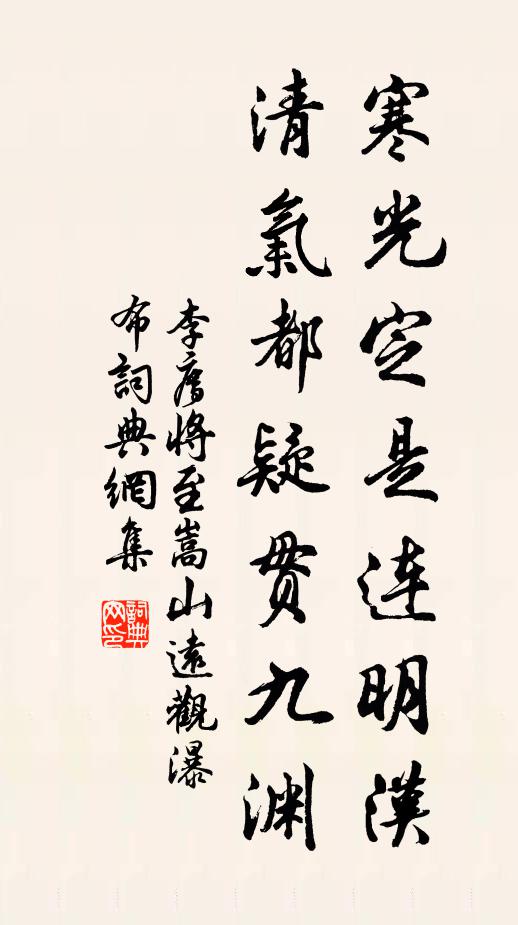 寒光定是连明漠
清氣都疑貫九渊
李廌將至嵩山遠觀瀑
布詞典網集
詞典
网印